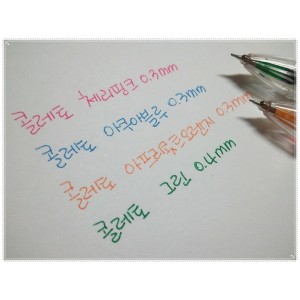 콜레토 체리핑크 0.3mm
콜레토 아쿠아블루 0.3mm
콜레토 아프리콧오렌지 0.3mm
콜레토 그린 0.4mm